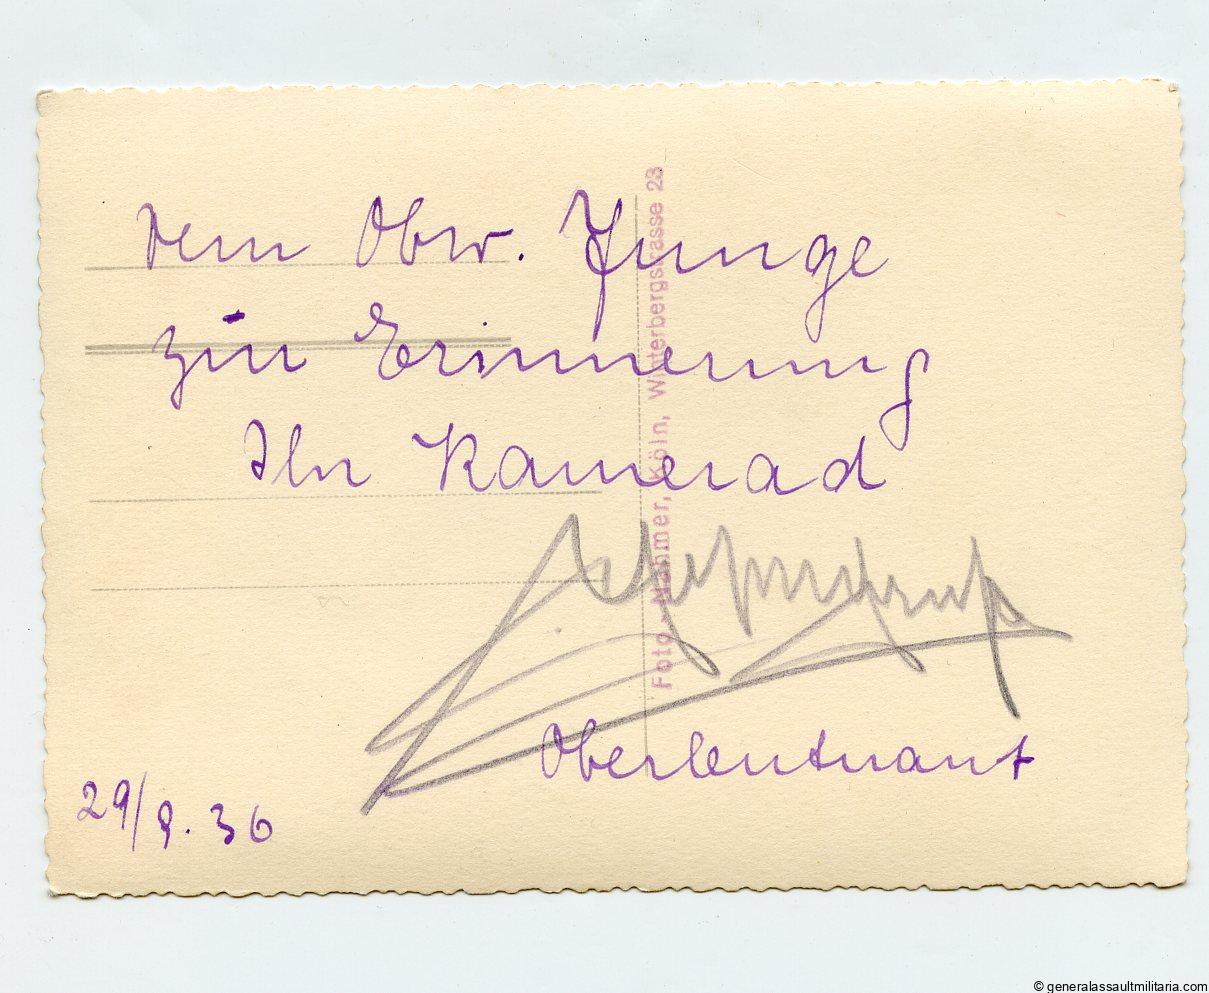 Dem Obw. Junge
zur Erinnerung
Ihr Kamerad
Oberleutnant
29/9. 36
Foto - Nahmer, Köln, Winterbergstrasse 23
© generalassaultmilitaria.com